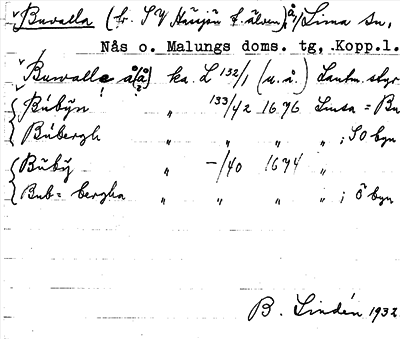 Buvalla (fr. SV Hänsjön t. älven), å, Lima sn,
Nås o. Malungs doms. tg, Kopp.l.
Buwalle a(å) ka. L 132/1 (u. å.) Lantm. styr
Bübÿn " 133/42 1696 Linsa = Bu
Bübergh " " " " ; SO byn
Büby " -/40 1674 "
Bub= bergha " " " " ; Ö byn
B. Lindén 1932